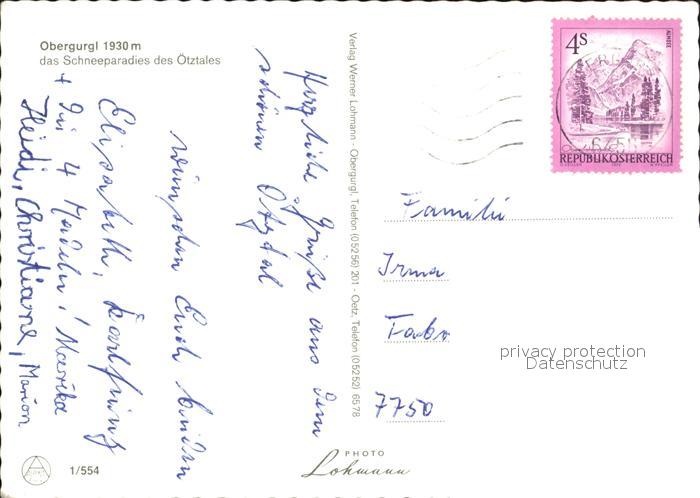 Obergurgl 1930 m
das Schneeparadies des Ötztales
Herzliche Grüße aus dem
schönen Ötztal
wünschen Euch beiden
Elisabeth, Karlheinz
+ die 4 Mädeln! Marika
Heidi, Christiane, Marion
Verlag Werner Lohmann - Obergurgl, Telefon (05256) 201 - Oetz, Telefon (05252) 6578
4 S
ALMSEE
REPUBLIK ÖSTERREICH
Familie
Irma
Fabr
7750
privacy protection
Datenschutz
1/554
PHOTO
Lohmann